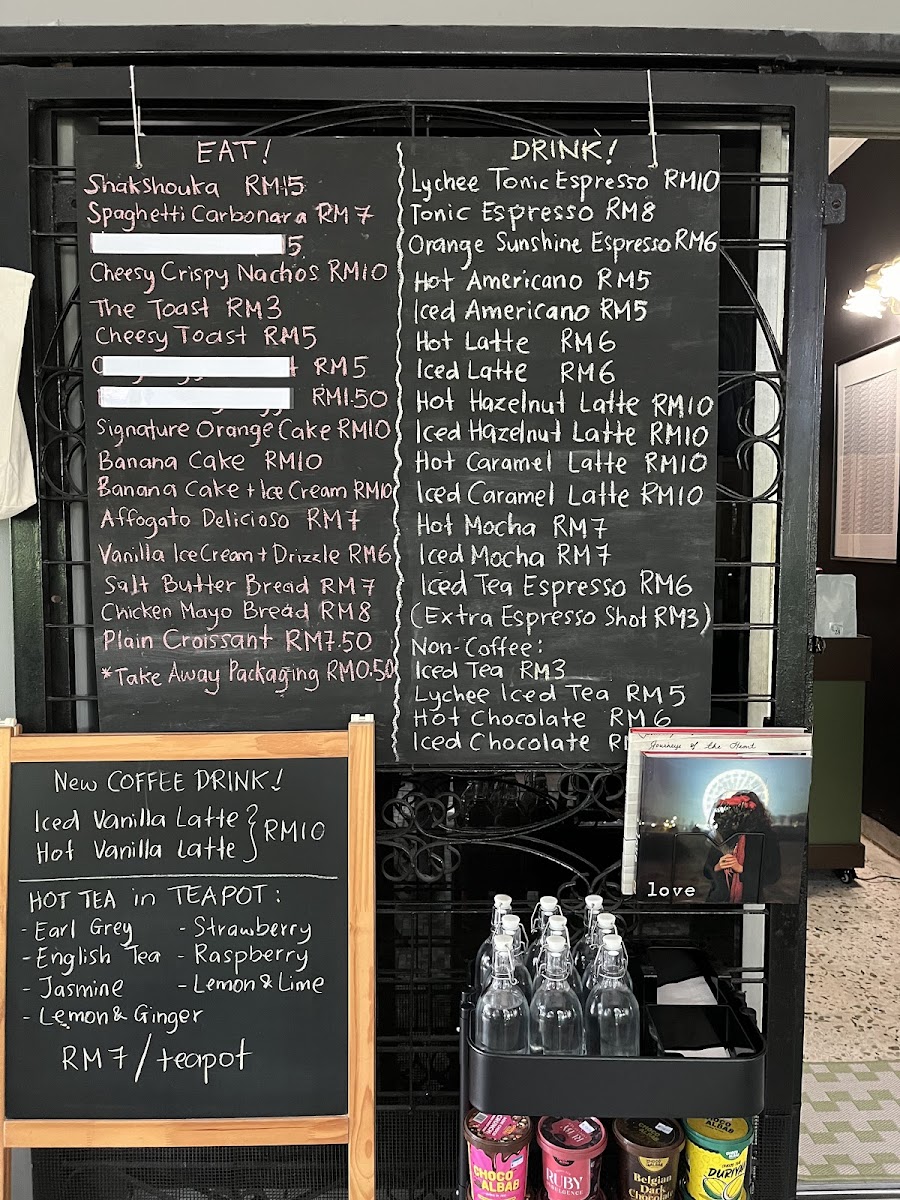 EAT!
Shakshouka RM15
Spaghetti Carbonara RM7
5
Cheesy Crispy Nachos RM10
The Toast RM3
Cheesy Toast RM5
RM5
RM1.50
Signature Orange Cake RM10
Banana Cake RM10
Banana Cake + Ice Cream RM10
Affogato Delicioso RM7
Vanilla Ice Cream + Drizzle RM6
Salt Butter Bread RM7
Chicken Mayo Bread RM8
Plain Croissant RM7.50
*Take Away Packaging RM0.50
DRINK!
Lychee Tonic Espresso RM10
Tonic Espresso RM8
Orange Sunshine Espresso RM6
Hot Americano RM5
Iced Americano RM5
Hot Latte RM6
Iced Latte RM6
Hot Hazelnut Latte RM10
Iced Hazelnut Latte RM10
Hot Caramel Latte RM10
Iced Caramel Latte RM10
Hot Mocha RM7
Iced Mocha RM7
Iced Tea Espresso RM6
(Extra Espresso Shot RM3)
Non-Coffee:
Iced Tea RM3
Lychee Iced Tea RM5
Hot Chocolate RM6
Iced Chocolate
New COFFEE DRINK!
Iced Vanilla Latte
Hot Vanilla Latte
RM10
HOT TEA in TEAPOT:
- Earl Grey
- English Tea
- Jasmine
- Lemon & Ginger
- Strawberry
- Raspberry
- Lemon & Lime
RM7/teapot
Journeys of the Heart
love
CHOCO
ALBAB
RUBY
Belgian
Dark
Chocolate
ALBAB